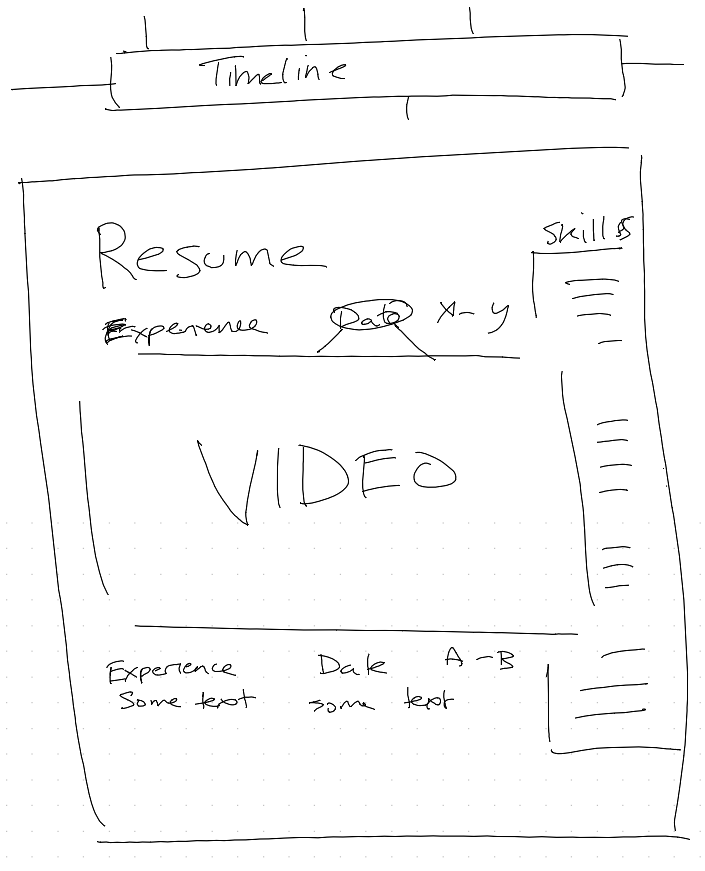 Timeline
Resume
Skills
Experience Date X - y
VIDEO
Experience Date A - B
Some text some text